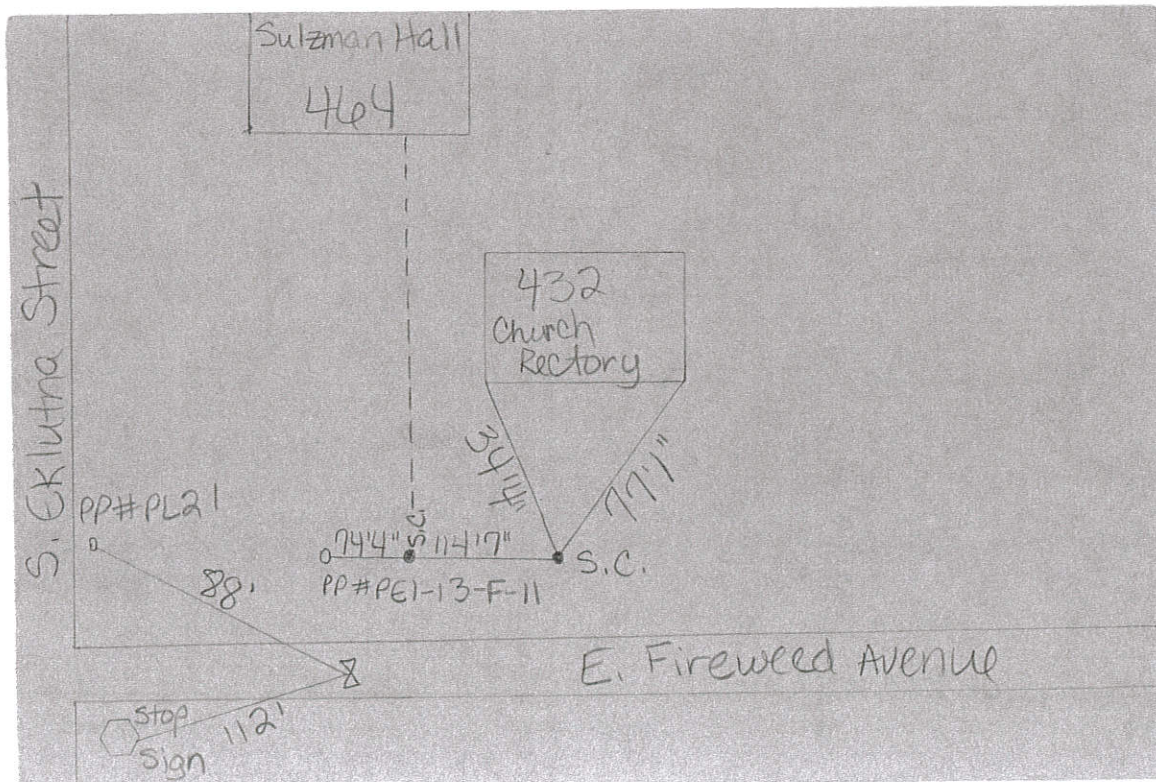 Sulzman Hall
464
S. Eklutna Street
432
Church
Rectory
34'4"
77'1"
PP#PL21
88'
74'4"
S.C.
114'7"
S.C.
PP#PE1-13-F-11
E. Fireweed Avenue
Stop
Sign
112'